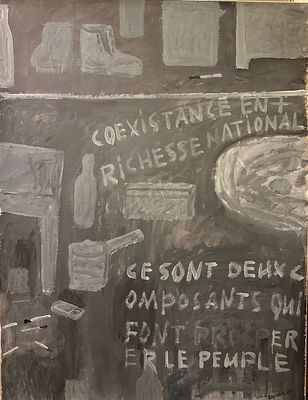 COEXISTANCE EN+
RICHESSE NATIONAL
CE SONT DEUX C
OMPOSANTS QUI
FONT PROSPER
ER LE PEUPLE